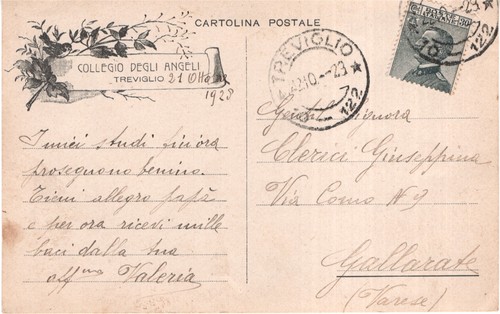 CARTOLINA POSTALE
COLLEGIO DEGLI ANGELI
TREVIGLIO 21 Ottobre
1928
I miei studi fin'ora
proseguono benino.
Tieni allegro papà
e per ora ricevi mille
baci dalla tua
aff.ma Valeria
TREVIGLIO
122
122
Signora
Clerici Giuseppina
Via Como N 9
Gallarate
(Varese)